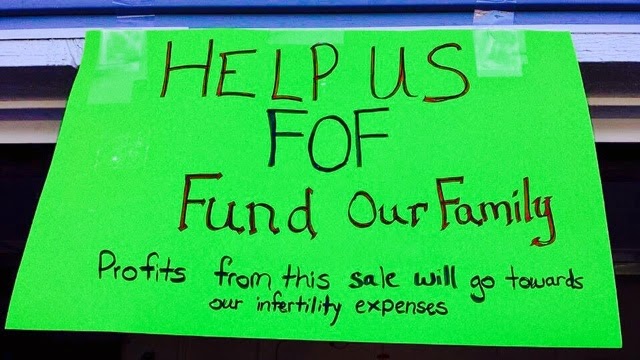 HELP US
FOF
Fund Our Family
Profits from this sale will go towards
our infertility expenses